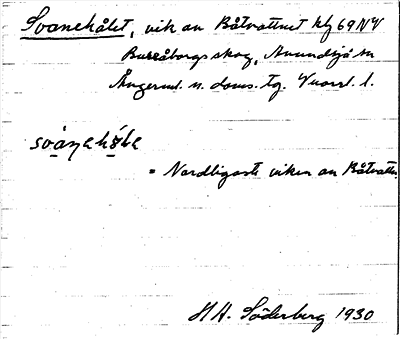 Svanehålet, vik av Båtvattnet kbl 69 NV
Bureåborgs skog, Anundsjö sn
Ångerml. n. doms. tg. Vnorrl. l.
svánehǻle
= Nordligaste viken av Båtvattn.
H H. Söderberg 1930